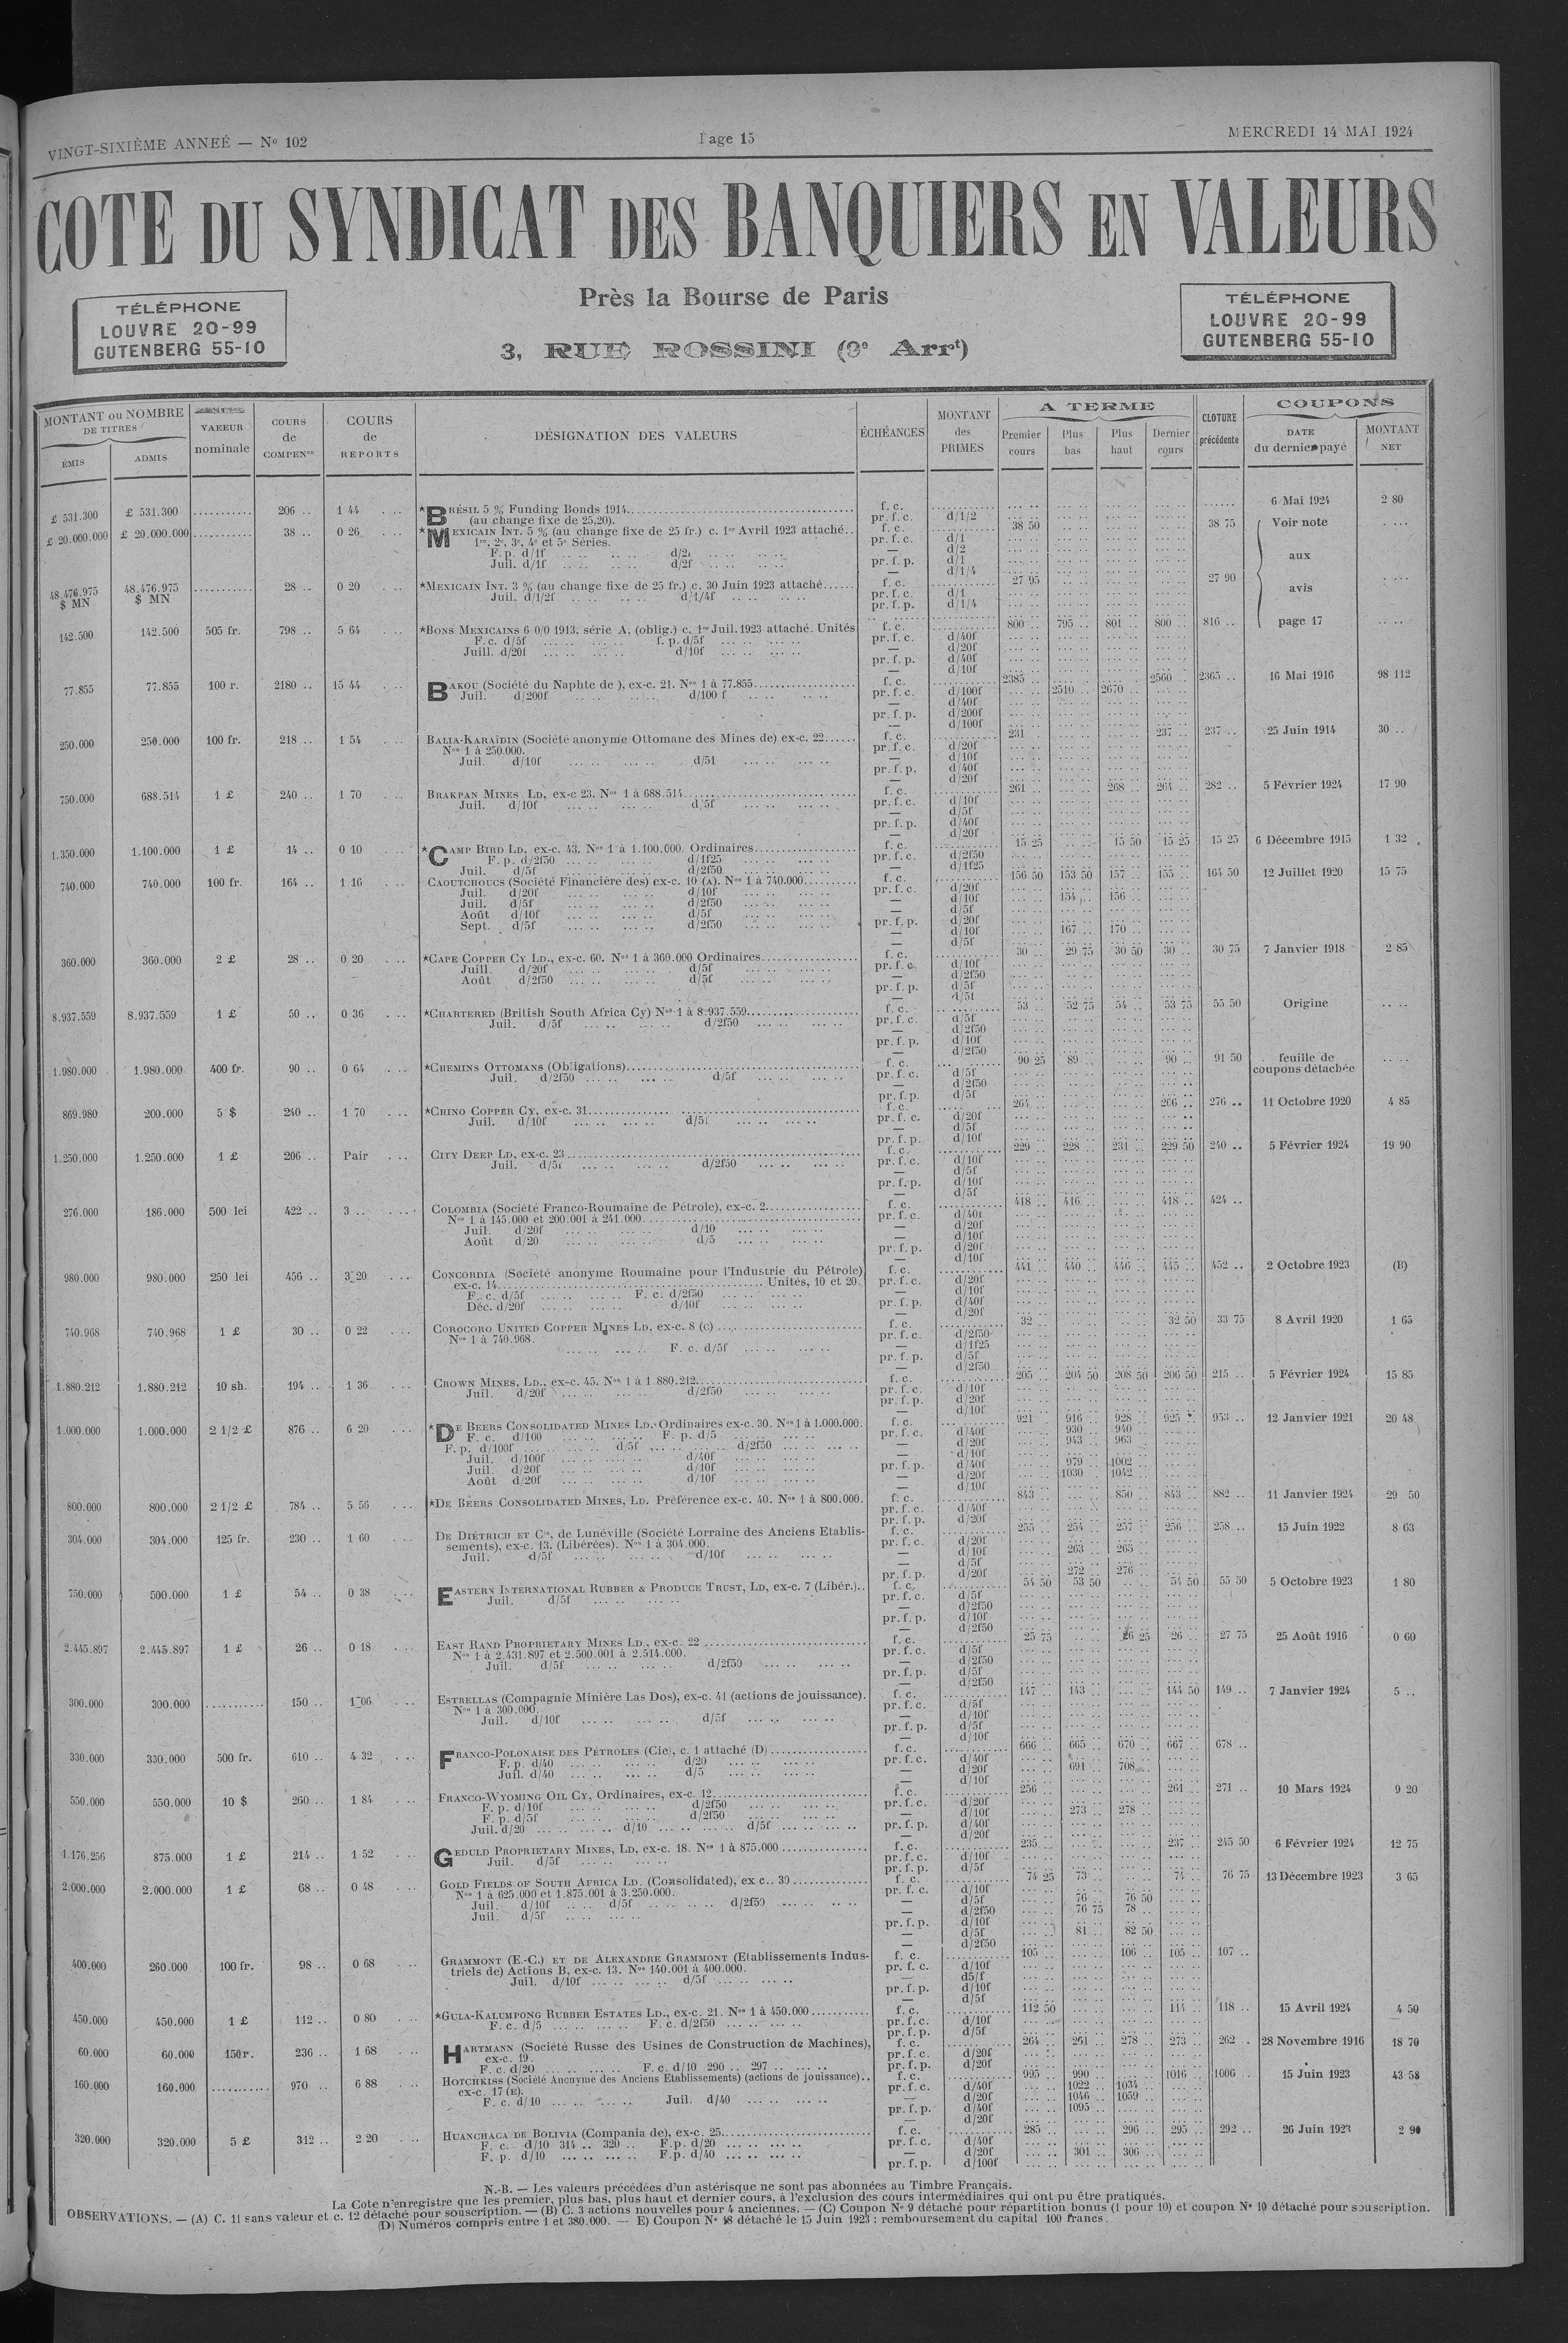 VINGT-SIXIÈME ANNEÉ — No 102
Page 15
MERCREDI 14 MAI 1924
COTE DU SYNDICAT DES BANQUIERS EN VALEURS
TÉLÉPHONE
LOUVRE 20-99
GUTENBERG 55-10
Près la Bourse de Paris
3, RUE ROSSINI (9e Arrt)
TÉLÉPHONE
LOUVRE 20-99
GUTENBERG 55-10
MONTANT ou NOMBRE DE TITRES
ÉMIS
ADMIS
VALEUR nominale
COURS de COMPENon
COURS de REPORTS
DÉSIGNATION DES VALEURS
ÉCHÉANCES
MONTANT des PRIMES
A TERME
Premier cours
Plus bas
Plus haut
Dernier cours
CLOTURE précédente
COUPONS
DATE du dernier payé
MONTANT NET
£ 531.300 £ 531.300 206 .. 1 44 *BRÉSIL 5 % Funding Bonds 1914 f. c. 6 Mai 1924 2 80
(au change fixe de 25,20). pr. f. c. d/1/2
£ 20.000.000 £ 20.000.000 38 .. 0 26 *MEXICAIN INT. 5 % (au change fixe de 25 fr.) c. 1er Avril 1923 attaché.. f. c. 38 50 38 75 Voir note
1re, 2e, 3e, 4e et 5e Séries. pr. f. c. d/1
F. p. d/1f d/2f
Juil. d/1f d/2f pr. f. p. d/1
aux
48.476.975 $ MN 48.476.975 $ MN 28 .. 0 20 *MEXICAIN INT. 3 % (au change fixe de 25 fr.) c. 30 Juin 1923 attaché f. c. 27 95 27 90 avis
Juil. d/1/2f d/1/4f pr. f. c. d/1
pr. f. p. d/1/4
142.500 142.500 505 fr. 798 .. 5 64 *BONS MEXICAINS 6 0/0 1913, série A, (oblig.) c. 1er Juil. 1923 attaché. Unités f. c. 800 .. 795 .. 801 .. 800 .. 816 .. page 17
F. c. d/5f f. p. d/5f pr. f. c. d/40f
Juill. d/20f d/10f — d/20f
pr. f. p. d/40f
— d/10f
77.855 77.855 100 r. 2180 .. 15 44 BAKOU (Société du Naphte de ), ex-c. 21. Nos 1 à 77.855 f. c. 2385 .. 2560 .. 2365 .. 16 Mai 1916 98 112
Juil. d/200f d/100 f pr. f. c. d/100f 2510 .. 2670 ..
— d/40f
pr. f. p. d/200f
— d/100f
250.000 250.000 100 fr. 218 .. 1 54 BALIA-KARAÏDIN (Société anonyme Ottomane des Mines de) ex-c. 22 f. c. 231 .. 237 .. 237 .. 25 Juin 1914 30 ..
Nos 1 à 250.000. pr. f. c. d/20f
Juil. d/10f d/5f — d/10f
pr. f. p. d/40f
— d/20f
750.000 688.514 1 £ 240 .. 1 70 BRAKPAN MINES LD, ex-c 23. Nos 1 à 688.514 f. c. 261 .. 268 .. 264 .. 282 .. 5 Février 1924 17 90
Juil. d/10f d/5f pr. f. c. d/10f
— d/5f
pr. f. p. d/40f
— d/20f
1.350.000 1.100.000 1 £ 14 .. 0 10 *CAMP BIRD LD. ex-c. 43. Nos 1 à 1.100.000. Ordinaires f. c. 15 25 15 50 15 25 15 25 6 Décembre 1915 1 32
F. p. d/2f50 d/1f25 pr. f. c. d/2f50
Juil. d/5f d/2f50 — d/1f25
740.000 740.000 100 fr. 164 .. 1 16 CAOUTCHOUCS (Société Financière des) ex-c. 10 (A). Nos 1 à 740.000 f. c. 156 50 153 50 157 .. 155 .. 164 50 12 Juillet 1920 15 75
Juil. d/20f d/10f pr. f. c. d/20f
Juil. d/5f d/2f50 — d/10f 154 .. 156 ..
Août d/10f d/5f — d/5f
Sept. d/5f d/2f50 pr. f. p. d/20f
— d/10f 167 .. 170 ..
— d/5f
360.000 360.000 2 £ 28 .. 0 20 *CAPE COPPER CY LD., ex-c. 60. Nos 1 à 360.000 Ordinaires f. c. 30 .. 29 75 30 50 30 .. 30 75 7 Janvier 1918 2 85
Juill. d/20f d/5f pr. f. c. d/10f
Août d/2f50 d/5f — d/2f50
pr. f. p. d/5f
8.937.559 8.937.559 1 £ 50 .. 0 36 *CHARTERED (British South Africa Cy) Nos 1 à 8.937.559 f. c. 53 .. 52 75 54 .. 53 75 55 50 Origine
Juil. d/5f d/2f50 pr. f. c. d/5f
— d/2f50
pr. f. p. d/10f
— d/2f50
1.980.000 1.980.000 400 fr. 90 .. 0 64 *CHEMINS OTTOMANS (Obligations) f. c. 90 25 89 .. 90 .. 91 50 feuille de coupons détachée
Juil. d/2f50 d/5f pr. f. c. d/5f
— d/2f50
pr. f. p. d/5f
869.980 200.000 5 $ 240 .. 1 70 *CHINO COPPER CY, ex-c. 31 f. c. 264 .. 266 .. 276 .. 11 Octobre 1920 4 85
Juil. d/10f d/5f pr. f. c. d/20f
— d/5f
pr. f. p. d/10f
1.250.000 1.250.000 1 £ 206 .. Pair CITY DEEP LD, ex-c. 23 f. c. 229 .. 228 .. 231 .. 229 50 240 .. 5 Février 1924 19 90
Juil. d/5f d/2f50 pr. f. c. d/10f
— d/5f
pr. f. p. d/10f
— d/5f
276.000 186.000 500 lei 422 .. 3 .. COLOMBIA (Société Franco-Roumaine de Pétrole), ex-c. 2 f. c. 418 .. 416 .. 418 .. 424 ..
Nos 1 à 145.000 et 200.001 à 241.000 pr. f. c. d/40f
Juil. d/20f d/10 — d/20f
Août d/20 d/5 — d/10f
pr. f. p. d/20f
— d/10f
980.000 980.000 250 lei 456 .. 3 20 CONCORDIA (Société anonyme Roumaine pour l'Industrie du Pétrole) f. c. 441 .. 440 .. 446 .. 445 .. 452 .. 2 Octobre 1923 (B)
ex-c. 14 Unités, 10 et 20. pr. f. c. d/20f
F. c. d/5f F. c. d/2f50 — d/10f
Déc. d/20f d/10f pr. f. p. d/40f
— d/20f
740.968 740.968 1 £ 30 .. 0 22 COROCORO UNITED COPPER MINES LD, ex-c. 8 (C) f. c. 32 .. 32 50 33 75 8 Avril 1920 1 65
Nos 1 à 740.968. pr. f. c. d/2f50
F. c. d/5f — d/1f25
pr. f. p. d/5f
— d/2f50
1.880.212 1.880.212 10 sh. 194 .. 1 36 CROWN MINES, LD., ex-c. 45. Nos 1 à 1.880.212 f. c. 205 .. 204 50 208 50 206 50 215 .. 5 Février 1924 15 85
Juil. d/20f d/2f50 pr. f. c. d/10f
pr. f. p. d/20f
— d/10f
1.000.000 1.000.000 2 1/2 £ 876 .. 6 20 *DE BEERS CONSOLIDATED MINES LD. Ordinaires ex-c. 30. Nos 1 à 1.000.000. f. c. 921 .. 916 .. 928 .. 925 .. 953 .. 12 Janvier 1921 20 48
F. c. d/100 F. p. d/5 pr. f. c. d/40f 930 .. 940 ..
F. p. d/100f d/5f d/2f50 — d/20f 943 .. 963 ..
Juil. d/100f d/40f — d/10f
Juil. d/20f d/10f pr. f. p. d/40f 979 .. 1002 ..
Août d/20f d/10f — d/20f 1030 .. 1042 ..
— d/10f
800.000 800.000 2 1/2 £ 784 .. 5 56 *DE BEERS CONSOLIDATED MINES, LD. Préférence ex-c. 40. Nos 1 à 800.000. f. c. 843 .. 850 .. 843 .. 882 .. 11 Janvier 1924 29 50
pr. f. c. d/40f
pr. f. p. d/20f
304.000 304.000 125 fr. 230 .. 1 60 DE DIÉTRICH ET Cie, de Lunéville (Société Lorraine des Anciens Etablis- f. c. 255 .. 254 .. 257 .. 256 .. 258 .. 15 Juin 1922 8 63
sements), ex-c. 13. (Libérées). Nos 1 à 304.000. pr. f. c. d/20f
Juil. d/5f d/10f — d/10f 263 .. 265 ..
— d/5f
pr. f. p. d/20f 272 .. 276 ..
750.000 500.000 1 £ 54 .. 0 38 EASTERN INTERNATIONAL RUBBER & PRODUCE TRUST, LD, ex-c. 7 (Libér.).. f. c. 54 50 53 50 54 50 55 50 5 Octobre 1923 1 80
Juil. d/5f pr. f. c. d/5f
— d/2f50
pr. f. p. d/10f
— d/2f50
2.445.897 2.445.897 1 £ 26 .. 0 18 EAST RAND PROPRIETARY MINES LD., ex-c. 22 f. c. 25 75 26 25 26 .. 27 75 25 Août 1916 0 60
Nos 1 à 2.431.897 et 2.500.001 à 2.514.000. pr. f. c. d/5f
Juil. d/5f d/2f50 — d/2f50
pr. f. p. d/5f
— d/2f50
300.000 300.000 150 .. 1 06 ESTRELLAS (Compagnie Minière Las Dos), ex-c. 41 (actions de jouissance). f. c. 147 .. 143 .. 144 50 149 .. 7 Janvier 1924 5 ..
Nos 1 à 300.000. pr. f. c. d/5f
Juil. d/10f d/5f — d/10f
pr. f. p. d/5f
— d/10f
330.000 330.000 500 fr. 610 .. 4 32 FRANCO-POLONAISE DES PÉTROLES (Cie), c. 1 attaché (D) f. c. 666 .. 665 .. 670 .. 667 .. 678 ..
F. p. d/40 d/20 pr. f. c. d/40f
Juil. d/40 d/5 — d/20f 691 .. 708 ..
— d/10f
550.000 550.000 10 $ 260 .. 1 84 FRANCO-WYOMING OIL CY, Ordinaires, ex-c. 12 f. c. 256 .. 261 .. 271 .. 10 Mars 1924 9 20
F. p. d/10f d/2f50 pr. f. c. d/20f
F. p. d/5f d/2f50 — d/10f 273 .. 278 ..
Juil. d/20 d/10 d/5f pr. f. p. d/40f
— d/20f
1.176.256 875.000 1 £ 214 .. 1 52 GEDULD PROPRIETARY MINES, LD, ex-c. 18. Nos 1 à 875.000 f. c. 235 .. 237 .. 245 50 6 Février 1924 12 75
Juil. d/5f pr. f. c. d/10f
pr. f. p. d/5f
2.000.000 2.000.000 1 £ 68 .. 0 48 GOLD FIELDS OF SOUTH AFRICA LD. (Consolidated), ex c.. 39 f. c. 74 25 73 .. 74 .. 76 75 13 Décembre 1923 3 65
Nos 1 à 625.000 et 1.875.001 à 3.250.000. pr. f. c. d/10f
Juil. d/10f d/5f d/2f50 — d/5f 76 .. 76 50
Juil. d/5f — d/2f50 76 75 78 ..
pr. f. p. d/10f
— d/5f 81 .. 82 50
— d/2f50
400.000 260.000 100 fr. 98 .. 0 68 GRAMMONT (E.-C.) ET DE ALEXANDRE GRAMMONT (Etablissements Indus- f. c. 105 .. 106 .. 105 .. 107 ..
triels de) Actions B, ex-c. 13. Nos 140.001 à 400.000. pr. f. c. d/10f
Juil. d/10f d/5f — d5/f
pr. f. p. d/10f
— d/5f
450.000 450.000 1 £ 112 .. 0 80 *GULA-KALUMPONG RUBBER ESTATES LD., ex-c. 21. Nos 1 à 450.000 f. c. 112 50 114 .. 118 .. 15 Avril 1924 4 50
F. c. d/5 F. c. d/2f50 pr. f. c. d/10f
pr. f. p. d/5f
60.000 60.000 150r. 236 .. 1 68 HARTMANN (Société Russe des Usines de Construction de Machines), f. c. 264 .. 261 .. 278 .. 273 .. 262 .. 28 Novembre 1916 18 70
ex-c. 19. pr. f. c. d/20f
F. c. d/20 F. c. d/10 290 .. 297 .. pr. f. p. d/20f
160.000 160.000 970 .. 6 88 HOTCHKISS (Société Anonyme des Anciens Etablissements) (actions de jouissance).. f. c. 995 .. 990 .. 1016 .. 1006 .. 15 Juin 1923 43 58
ex-c. 17 (E). pr. f. c. d/40f 1022 .. 1034 ..
F. c. d/10 Juil. d/40 — d/20f 1046 .. 1059 ..
pr. f. p. d/40f 1095 ..
— d/20f
320.000 320.000 5 £ 312 .. 2 20 HUANCHACA DE BOLIVIA (Compania de), ex-c. 25 f. c. 285 .. 296 .. 295 .. 292 .. 26 Juin 1923 2 90
F. c. d/10 314 .. 320 .. F.p. d/20 pr. f. c. d/40f
F. p. d/10 F.p. d/40 — d/20f 301 .. 306 ..
pr. f. p. d/100f
N.-B. — Les valeurs précédées d'un astérisque ne sont pas abonnées au Timbre Français.
La Cote n'enregistre que les premier, plus bas, plus haut et dernier cours, à l'exclusion des cours intermédiaires qui ont pu être pratiqués.
OBSERVATIONS. — (A) C. 11 sans valeur et c. 12 détaché pour souscription. — (B) C. 3 actions nouvelles pour 4 anciennes. — (C) Coupon No 9 détaché pour répartition bonus (1 pour 10) et coupon No 10 détaché pour souscription.
(D) Numéros compris entre 1 et 380.000. — E) Coupon No 18 détaché le 15 Juin 1923 : remboursement du capital 100 francs.